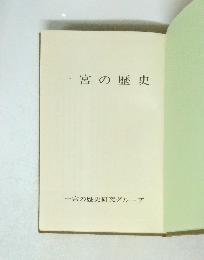 一宮の歴史
一宮の歴史研究グループ